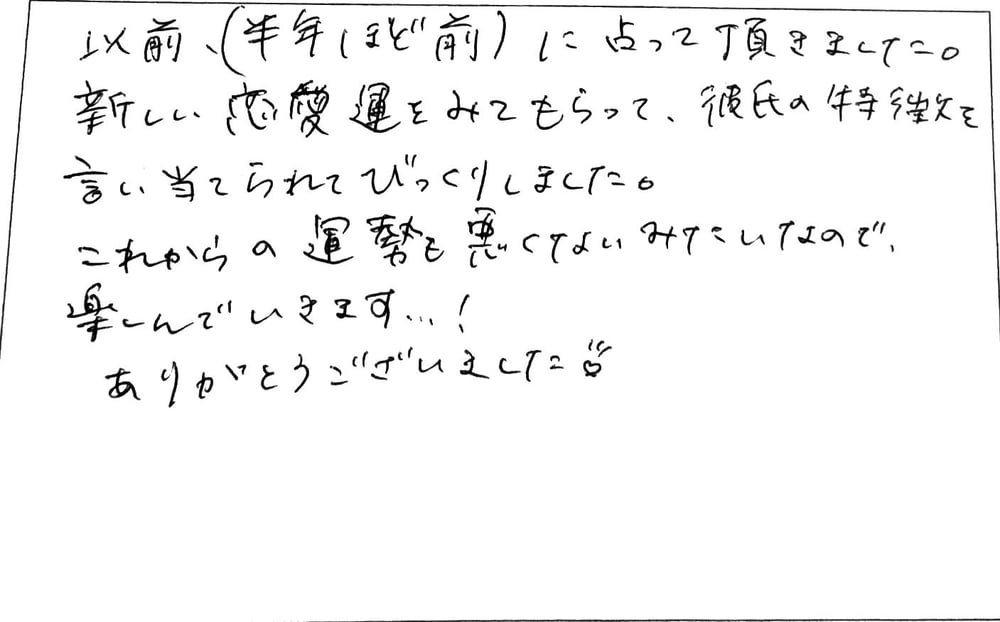 以前、(半年ほど前)に占って頂きました。
新しい恋愛運をみてもらって、彼氏の特徴を
言い当てられてびっくりしました。
これからの運勢も悪くないみたいなので、
楽しんでいきます…!
ありがとうございました